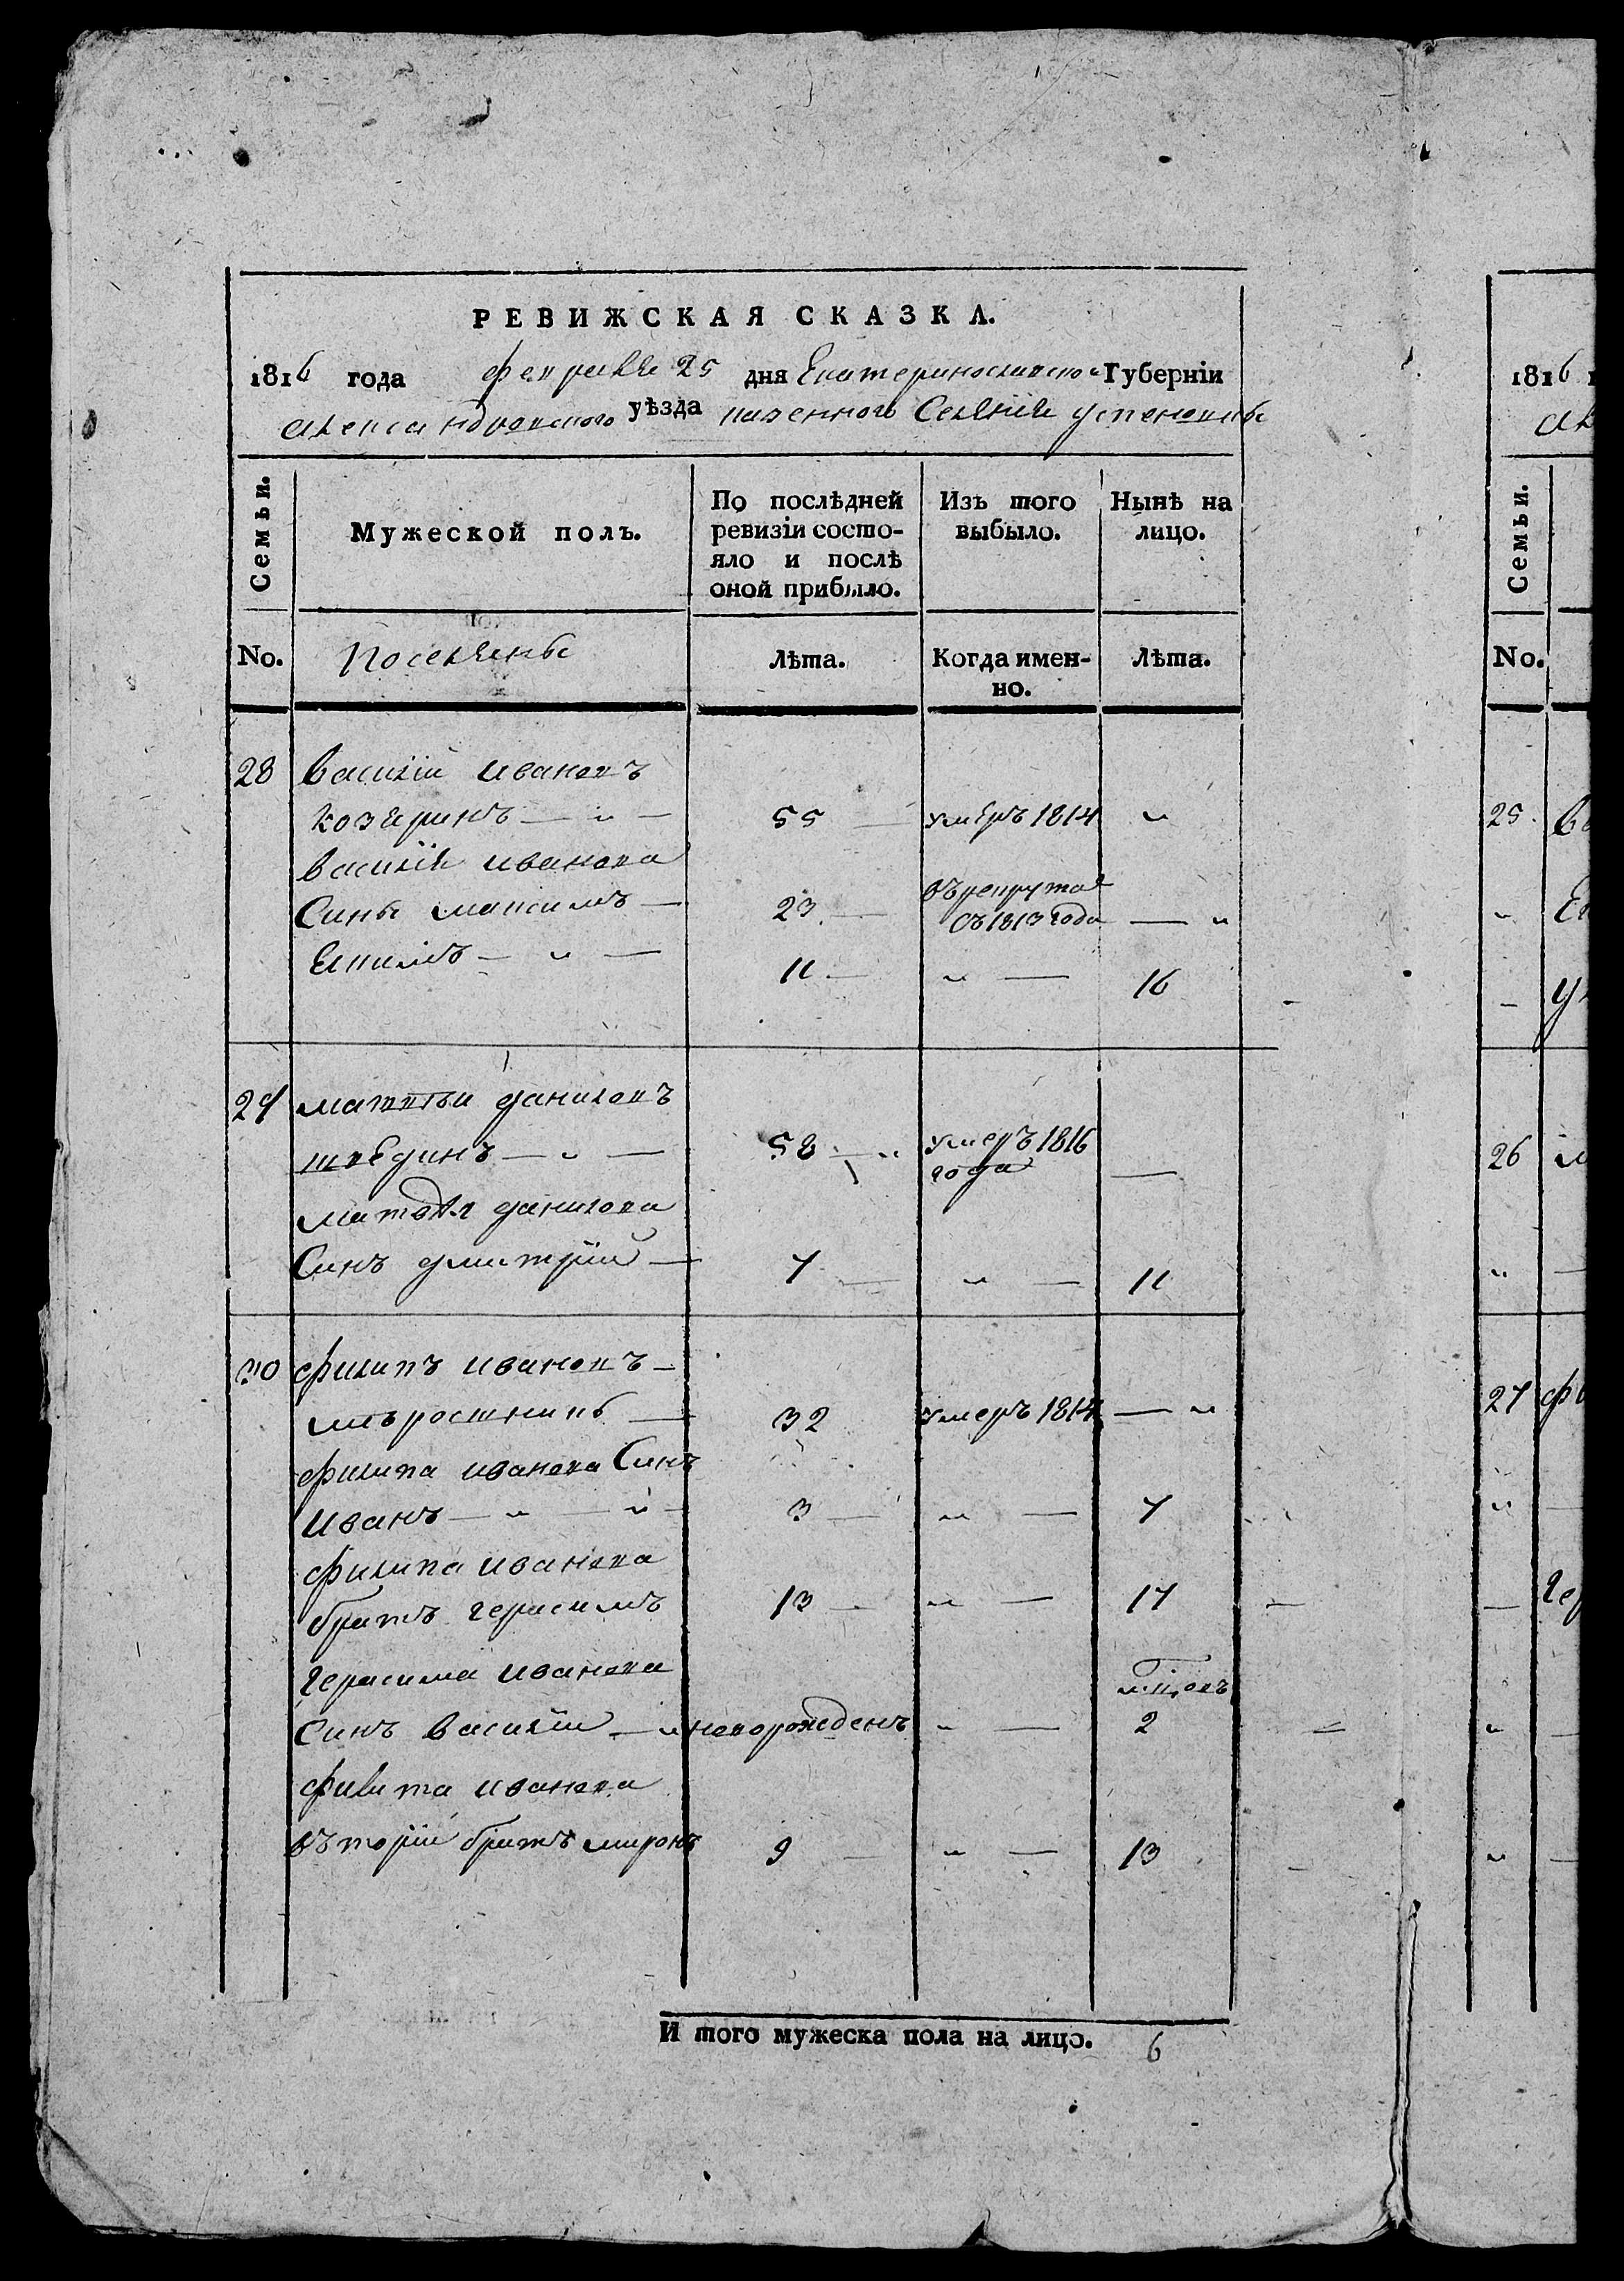 РЕВИЖСКАЯ СКАЗКА.
1816 года февраля 25 дня Екатеринославской Губерніи
александровского уѣзда казенного Селения успеновкы
Семьи.
Мужеской полъ.
По послѣдней ревизіи состо-
яло и послѣ
оной прибыло.
Изъ того
выбыло.
Нынѣ на
лицо.
No. Поселяны Лѣта. Когда имен-
но. Лѣта.
28 василій ивановъ
козяринъ — „ — 55 — умеръ 1814 „
василія иванова
Сины максимъ — 23 — въ рекрута
съ 1813 года — „
Екимъ — „ — 11 — „ — 16
29 матвѣи даниловъ
швединъ — „ — 58 — „ умеръ 1816
года —
матвѣя данилова
Синъ дмитрій — 7 — „ — 11
30 филипъ ивановъ —
мърошникъ — 32 умеръ 1814 — „
филипа иванова Синъ
иванъ — „ — „ — 3 — „ — 7
филипа иванова
братъ герасимъ 13 — „ — 17
герасима иванова
Синъ василій — „ новорожденъ „ — 2
филипа иванова
въторій братъ миронъ 9 — „ — 13
И того мужеска пола на лицо. 6
1816
ал
Семьи.
No.
25. ва
„
ум
26 м
„
27 фи
„
— гер
„
„